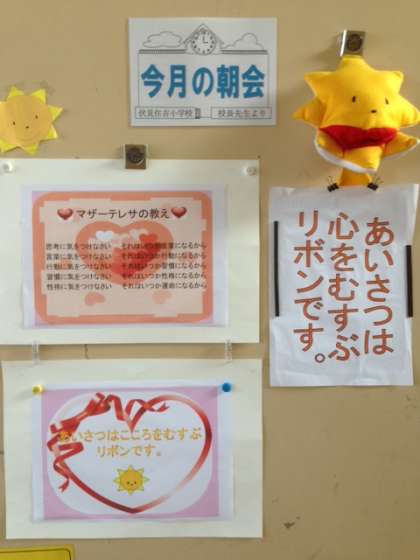 今月の朝会
伏見住吉小学校
校長先生より
マザーテレサの教え
思考に気をつけなさい それはいつか言葉になるから
言葉に気をつけなさい それはいつか行動になるから
行動に気をつけなさい それはいつか習慣になるから
習慣に気をつけなさい それはいつか性格になるから
性格に気をつけなさい それはいつか運命になるから
あいさつは
心をむすぶ
リボンです。
あいさつはこころをむすぶ
リボンです。